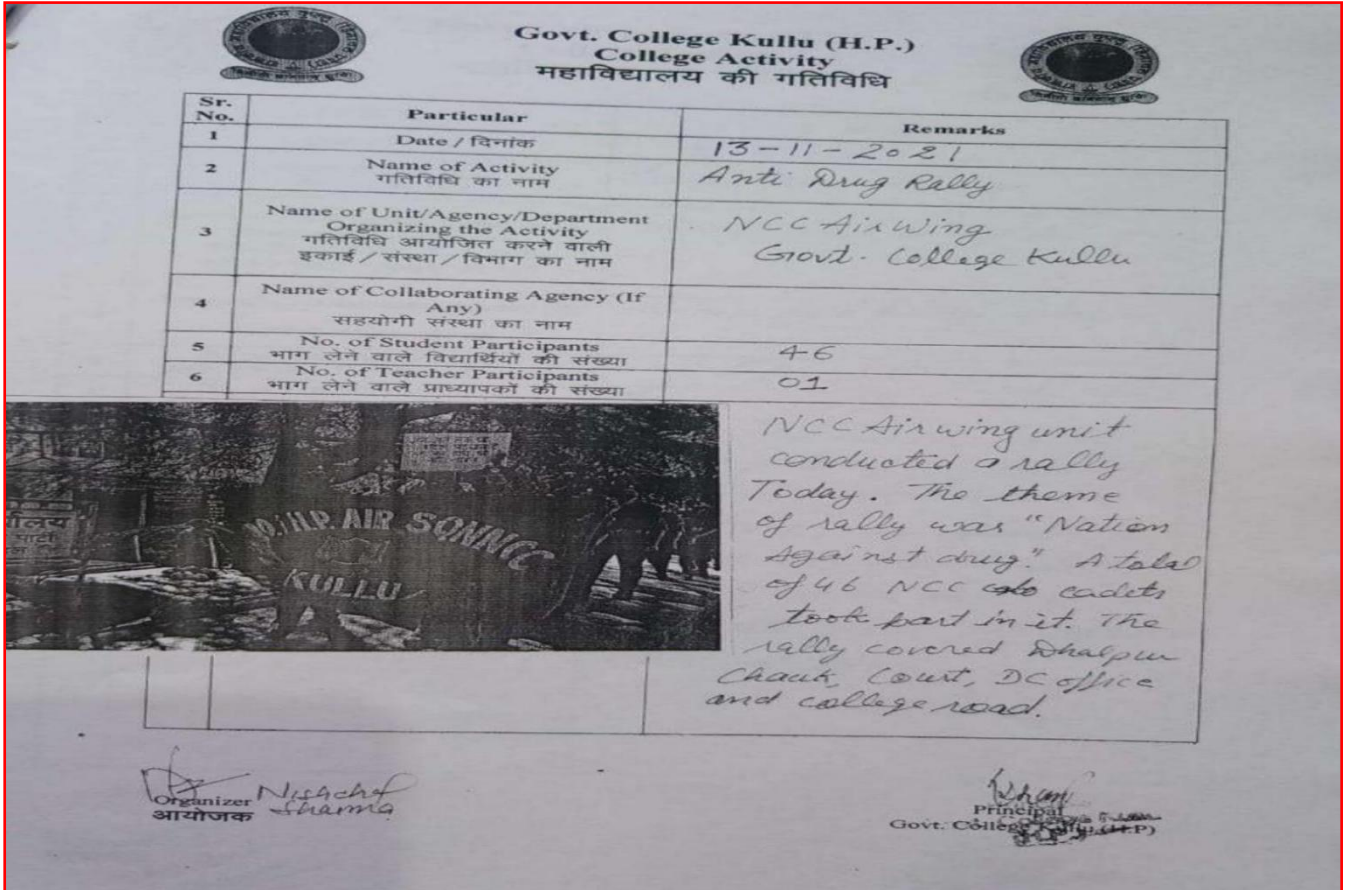 Govt. College Kullu (H.P.)
College Activity
महाविद्यालय की गतिविधि
Sr. No. Particular Remarks
1 Date / दिनांक 13-11-2021
2 Name of Activity Anti Drug Rally
गतिविधि का नाम
3 Name of Unit/Agency/Department
Organizing the Activity
गतिविधि आयोजित करने वाली
इकाई / संस्था / विभाग का नाम
NCC Air Wing
Govt. College Kullu
4 Name of Collaborating Agency (If
Any)
सहयोगी संस्था का नाम
5 No. of Student Participants 46
भाग लेने वाले विद्यार्थियों की संख्या
6 No. of Teacher Participants 01
भाग लेने वाले प्राध्यापकों की संख्या
HP AIR SQN NCC
KULLU
NCC Air wing unit
conducted a rally
Today. The theme
of rally was "Nation
Against drug." A total
of 46 NCC cadets
took part in it. The
rally covered Dhalpur
Chauk, Court, DC office
and college road.
Organizer
आयोजक
Sharma
Principal
Govt. College Kullu (H.P)